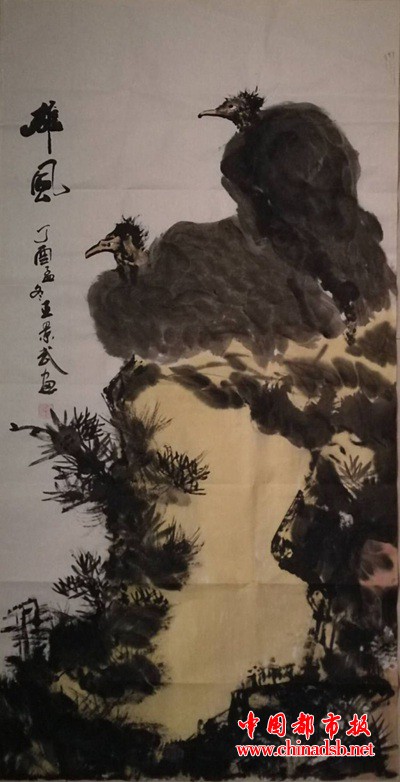 雄风
丁酉孟冬王景武画
中国都市报
www.chinadsb.net